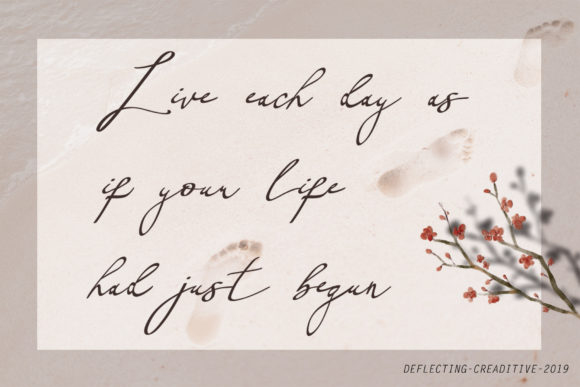 Live each day as
if your life
had just begun
DEFLECTING-CREADITIVE-2019